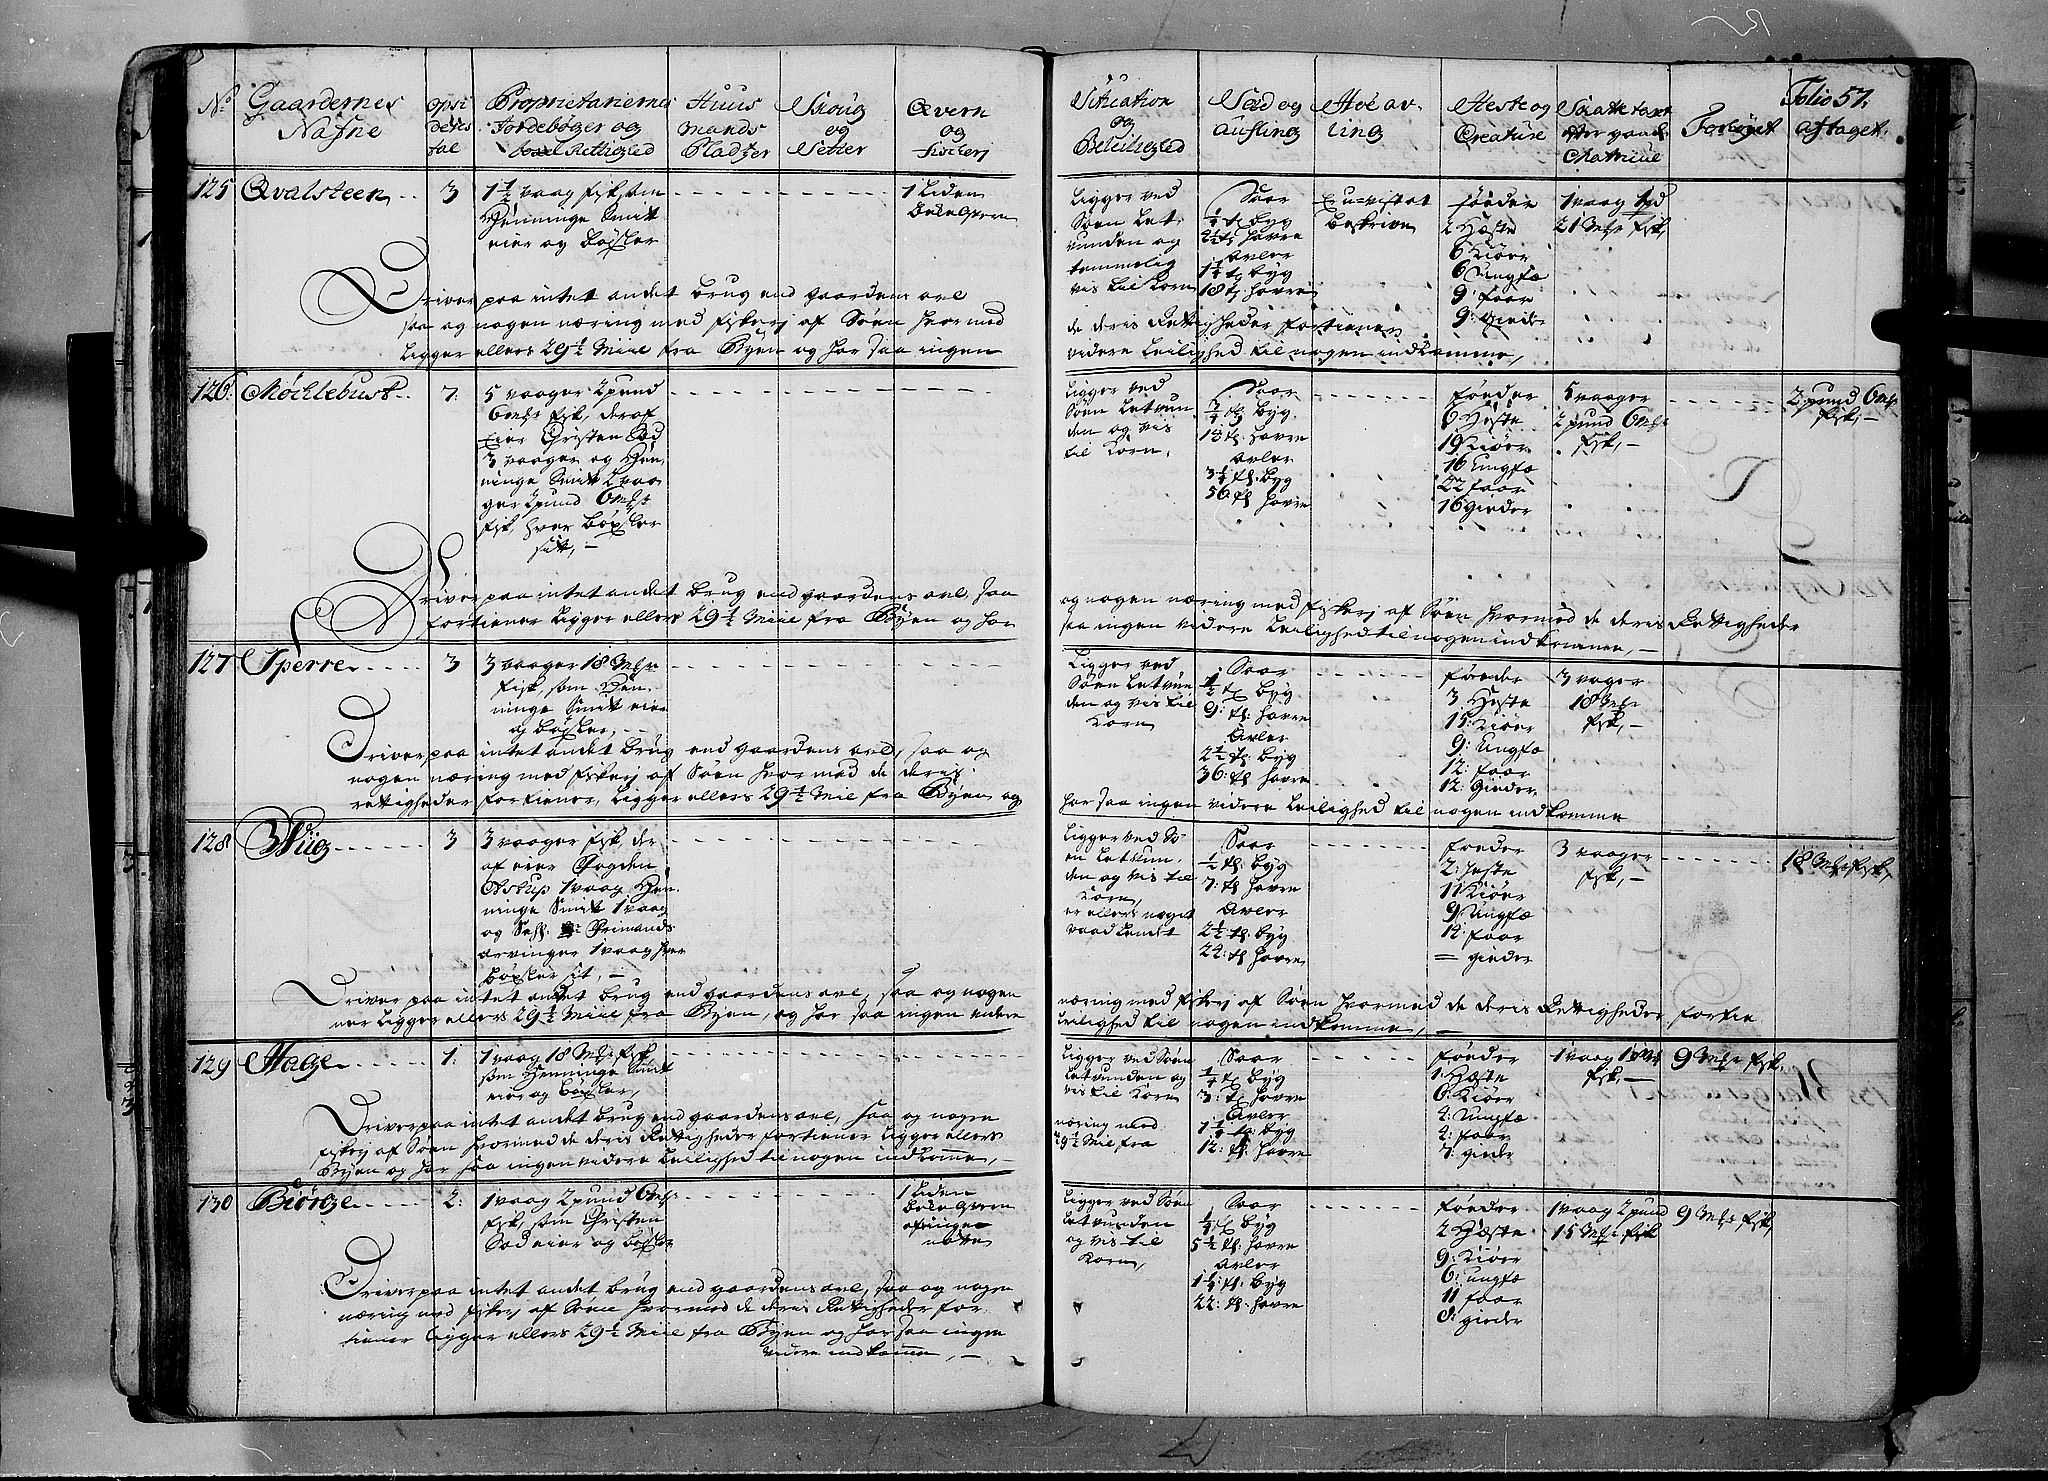 Folio 57.
No. Gaardernes Nafne
Opsi deres tal
Proprietariernes Jordebøger og boxel Rettighed
Huus mands Pladtzer
Skoug og Setter
Qvern og fischerj
Situation og Beleilighed
Sæd og aufling
Høe av ling
Heste og Creature
Skatte taxt efter gamle Matricul
Forhøyet
aftaget.
125 Qvalsteen
3
1 1/2 vaag fisk som
Henninge Smit
eier og bøxler
1 liden
bekqvern
Ligger ved
Søen Let-
vunden og
temmelig
vis til Korn
Saar
1/4 t byg
2 1/2 t havre
avler
1 1/4 t byg
18 t havre
En u-vis at
beskrive
føeder
2 Heste
6 Kiør
6 Ungfæ
9 faar
9 gieder
1 vaag 1 pd
21 Mkr fisk,
Driver paa intet andet brug end gaardens avl
saa og nogen næring med fiskerj af Søen hvormed
de deris Rettigheder fortiener
Ligger ellers 29 1/2 Miil fra Byen og har saa ingen
videre leilighed til nogen indkomme,
126. Møchlebust
7.
5 vaager 2 pund
6 mkr fisk, deraf
Eier Christen Sad
3 vaager og Hen-
ninge Smit 2 vaa
ger 2 pund 6 mkr
fisk, hver bøxler
sit, -
Ligger ved
Søen Letvun-
den og vis
til Korn.
Saar
3/4 t byg.
18 t. havre
avler
3 1/4 t. byg
56. t. havre
føeder
6 Heste
19 Kiør
16 Ungfæ
22 faar
16 gieder
5 vaager
2 pund 6 mkr
fisk, -
2 pund 6 mkr
fisk, -
Driver paa intet andet brug end gaardens avl, saa
og nogen næring med fiskerj af Søen hvormed de deris Rettigheder
fortiener Ligger ellers 29 1/2 Miil fra Byen og har
saa ingen videre Leilighed til nogen indkomme, -
127 Sperre
3
3 vaager 18 Mkr
fisk, som Hen-
ninge Smit eier
og bøxler,
Ligger ved
Søen Letvun
den og vis til
Korn
Saar
1/2 t byg
9: t: havre
Avler
2 1/2 t. byg
36: t. havre
føeder
3 Heste
15: Kiør
9: Ungfæ
12: faar
12: Gieder
3 vager
18 Mkr
fisk, -
Driver paa intet andet brug end gaardens avl, saa og
nogen næring med fiskerj af Søen hvormed de deris
rettigheder fortiener, Ligger ellers 29 1/2 Mil fra Byen og
har saa ingen videre Leilighed til nogen indkomme
128 Wiig
3
3 vaager fisk, der
af eier Fogden
Astrup 1 vaag Hen-
ninge Smit 1 vaag
og Grimands
arvinger 1 vaag hver
bøxler sit, -
Ligger ved Sø-
en Letvun-
den og vis til
Korn,
er ellers noget
vaad Lendet
Saar
1/2 t. byg
7: t. havre
Avler
2 1/2 t. byg
24: t. havre
føeder
2: Heste
11 Kiør
9: Ungfæ
12: faar
= gieder
3 vaager
fisk, -
18 Mkr fisk,
Driver paa intet andet brug end gaardens avl, saa og nogen
næring med fiskerj af Søen hvormed de deris Rettigheder fortie
ner Ligger ellers 29 1/2 Miil fra Byen, og har saa ingen videre
Leilighed til nogen indkomme, -
129 Hage
1.
1 vaag 18 Mkr fisk
som Henninge Smit
eier og bøxler,
Ligger ved Søen
Letvunden og
vis til Korn
Saar
1/4 t byg
3: t. havre
Avler
1 1/4 t. byg
12: t. havre
føeder
1 Heste
6 Kiør
4: Ungfæ
4: faar
7: gieder
1 vaag 18 Mkr
fisk, -
9 Mkr fisk,
Driver paa intet andet brug end gaardens avl, saa og nogen
næring med
fiskerj af Søen hvormed de deris Rettigheder fortiener Ligger ellers
29 1/2 Mil fra
Byen og har saa ingen videre Leilighed til nogen indkomme, -
130 Biørge
2:
1 vaag 2 pund 6 mkr
fisk, som Christen
Sad eier og bøxler
1 liden
bekqvern
af ringe
nøtte
Ligger ved Søen
Letvunden
og vis til
Korn,
Saar
1/4 t byg
5 1/2 t. havre
avler
1 1/4: t. byg
22: t. havre
føeder
2 Heste
9: Kiør
6: ungfæ
11 faar
8: gieder
1 vaag 2 pund
15 Mkr fisk
9 Mkr fisk,
Driver paa intet andet brug end gaardens avl, saa og nogen
næring med fiskerj af Søen hvormed de deris Rettigheder for-
tiener Ligger ellers 29 1/2 Miil fra Byen og har saa ingen
videre indkomme, -